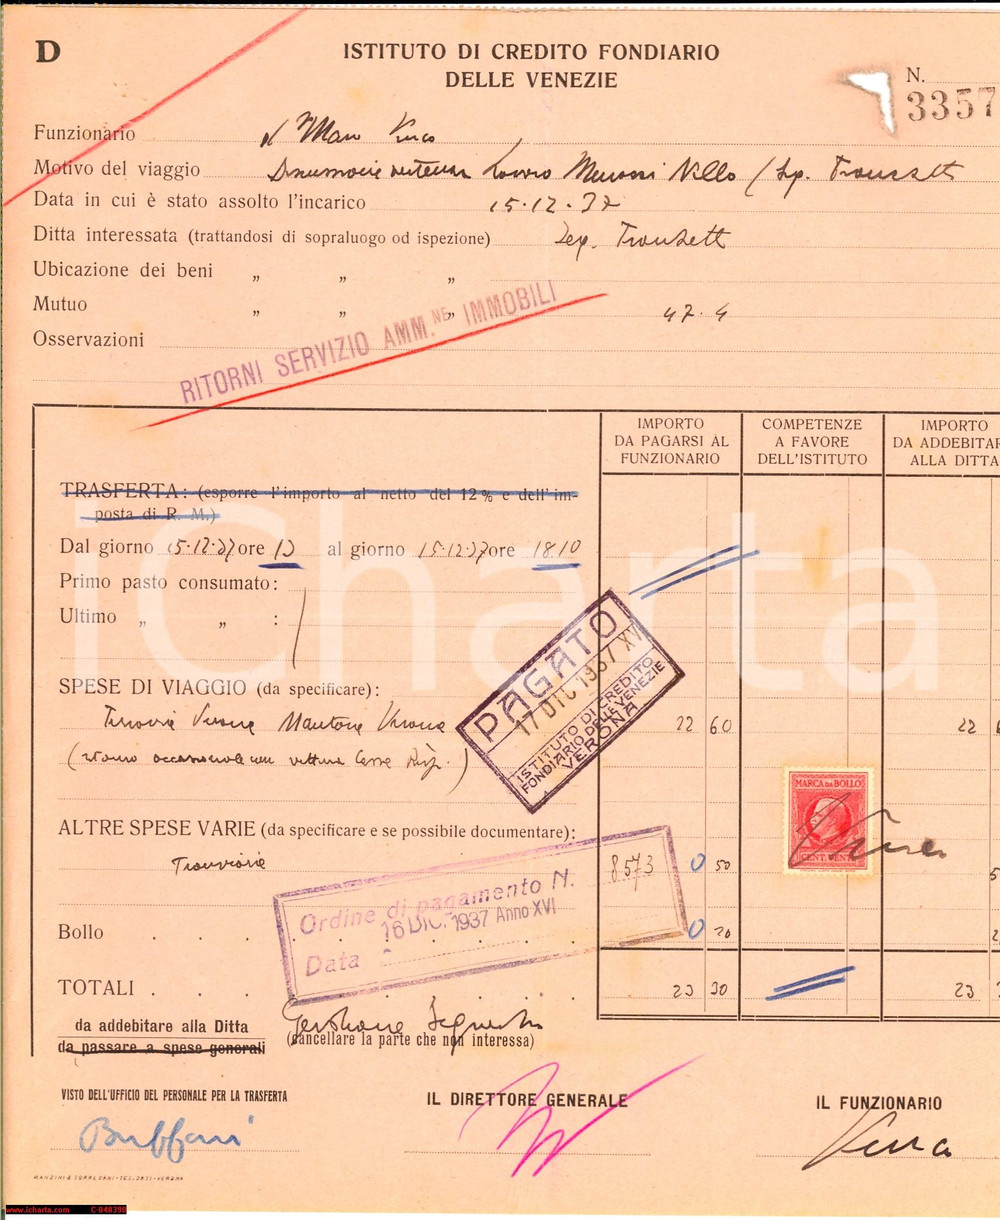 D
ISTITUTO DI CREDITO FONDIARIO
DELLE VENEZIE
N.
3357
Funzionario
Motivo del viaggio
Data in cui è stato assolto l'incarico 15.12.37
Ditta interessata (trattandosi di sopraluogo od ispezione)
Ubicazione dei beni „ „ „
Mutuo „ „ „ 47.4
Osservazioni
RITORNI SERVIZIO AMM.NE IMMOBILI
IMPORTO
DA PAGARSI AL
FUNZIONARIO
COMPETENZE
A FAVORE
DELL'ISTITUTO
IMPORTO
DA ADDEBITAR
ALLA DITTA
TRASFERTA: (esporre l'importo al netto del 12% e dell'im-
posta di R. M.)
Dal giorno 15.12.37 ore 13 al giorno 15.12.37 ore 18.10
Primo pasto consumato:
Ultimo „ „ :
PAGATO
17 DIC 1937 XVI
ISTITUTO DI CREDITO
FONDIARIO DELLE VENEZIE
VERONA
SPESE DI VIAGGIO (da specificare):
Ferrovia Verona Mantova Verona 22 60 22
MARCA DA BOLLO
CENT. VENTI
ALTRE SPESE VARIE (da specificare e se possibile documentare):
Tramvia 0 50 5
Ordine di pagamento N. 8573
16 DIC. 1937 Anno XVI
Data
Bollo . . . . 0 20 2
TOTALI . . . 23 30 23
da addebitare alla Ditta
da passare a spese generali
Gestione Sequestri
(cancellare la parte che non interessa)
VISTO DELL'UFFICIO DEL PERSONALE PER LA TRASFERTA
IL DIRETTORE GENERALE
IL FUNZIONARIO
iCharta
www.icharta.com C-048398